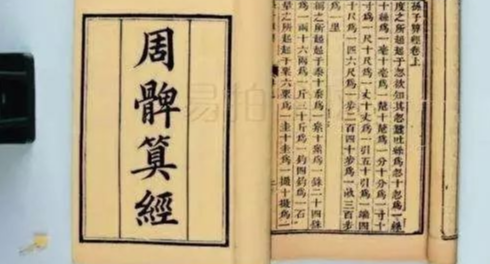 周髀算經
孫子算經卷上
度之所起起于忽欲知其忽蠶吐絲爲忽十忽爲一絲
十絲爲一毫十毫爲一氂十氂爲一分十分爲一寸
十寸爲一尺十尺爲一丈十丈爲一引五十引爲一端
四十尺爲一疋六尺爲一步二百四十步爲一畝三百步
爲一里
稱之所起起于黍十黍爲一絫十絫爲一銖二十四銖
爲一兩十六兩爲一斤三十斤爲一鈞四鈞爲一石
量之所起起于粟六粟爲一圭十圭爲一撮十撮爲一